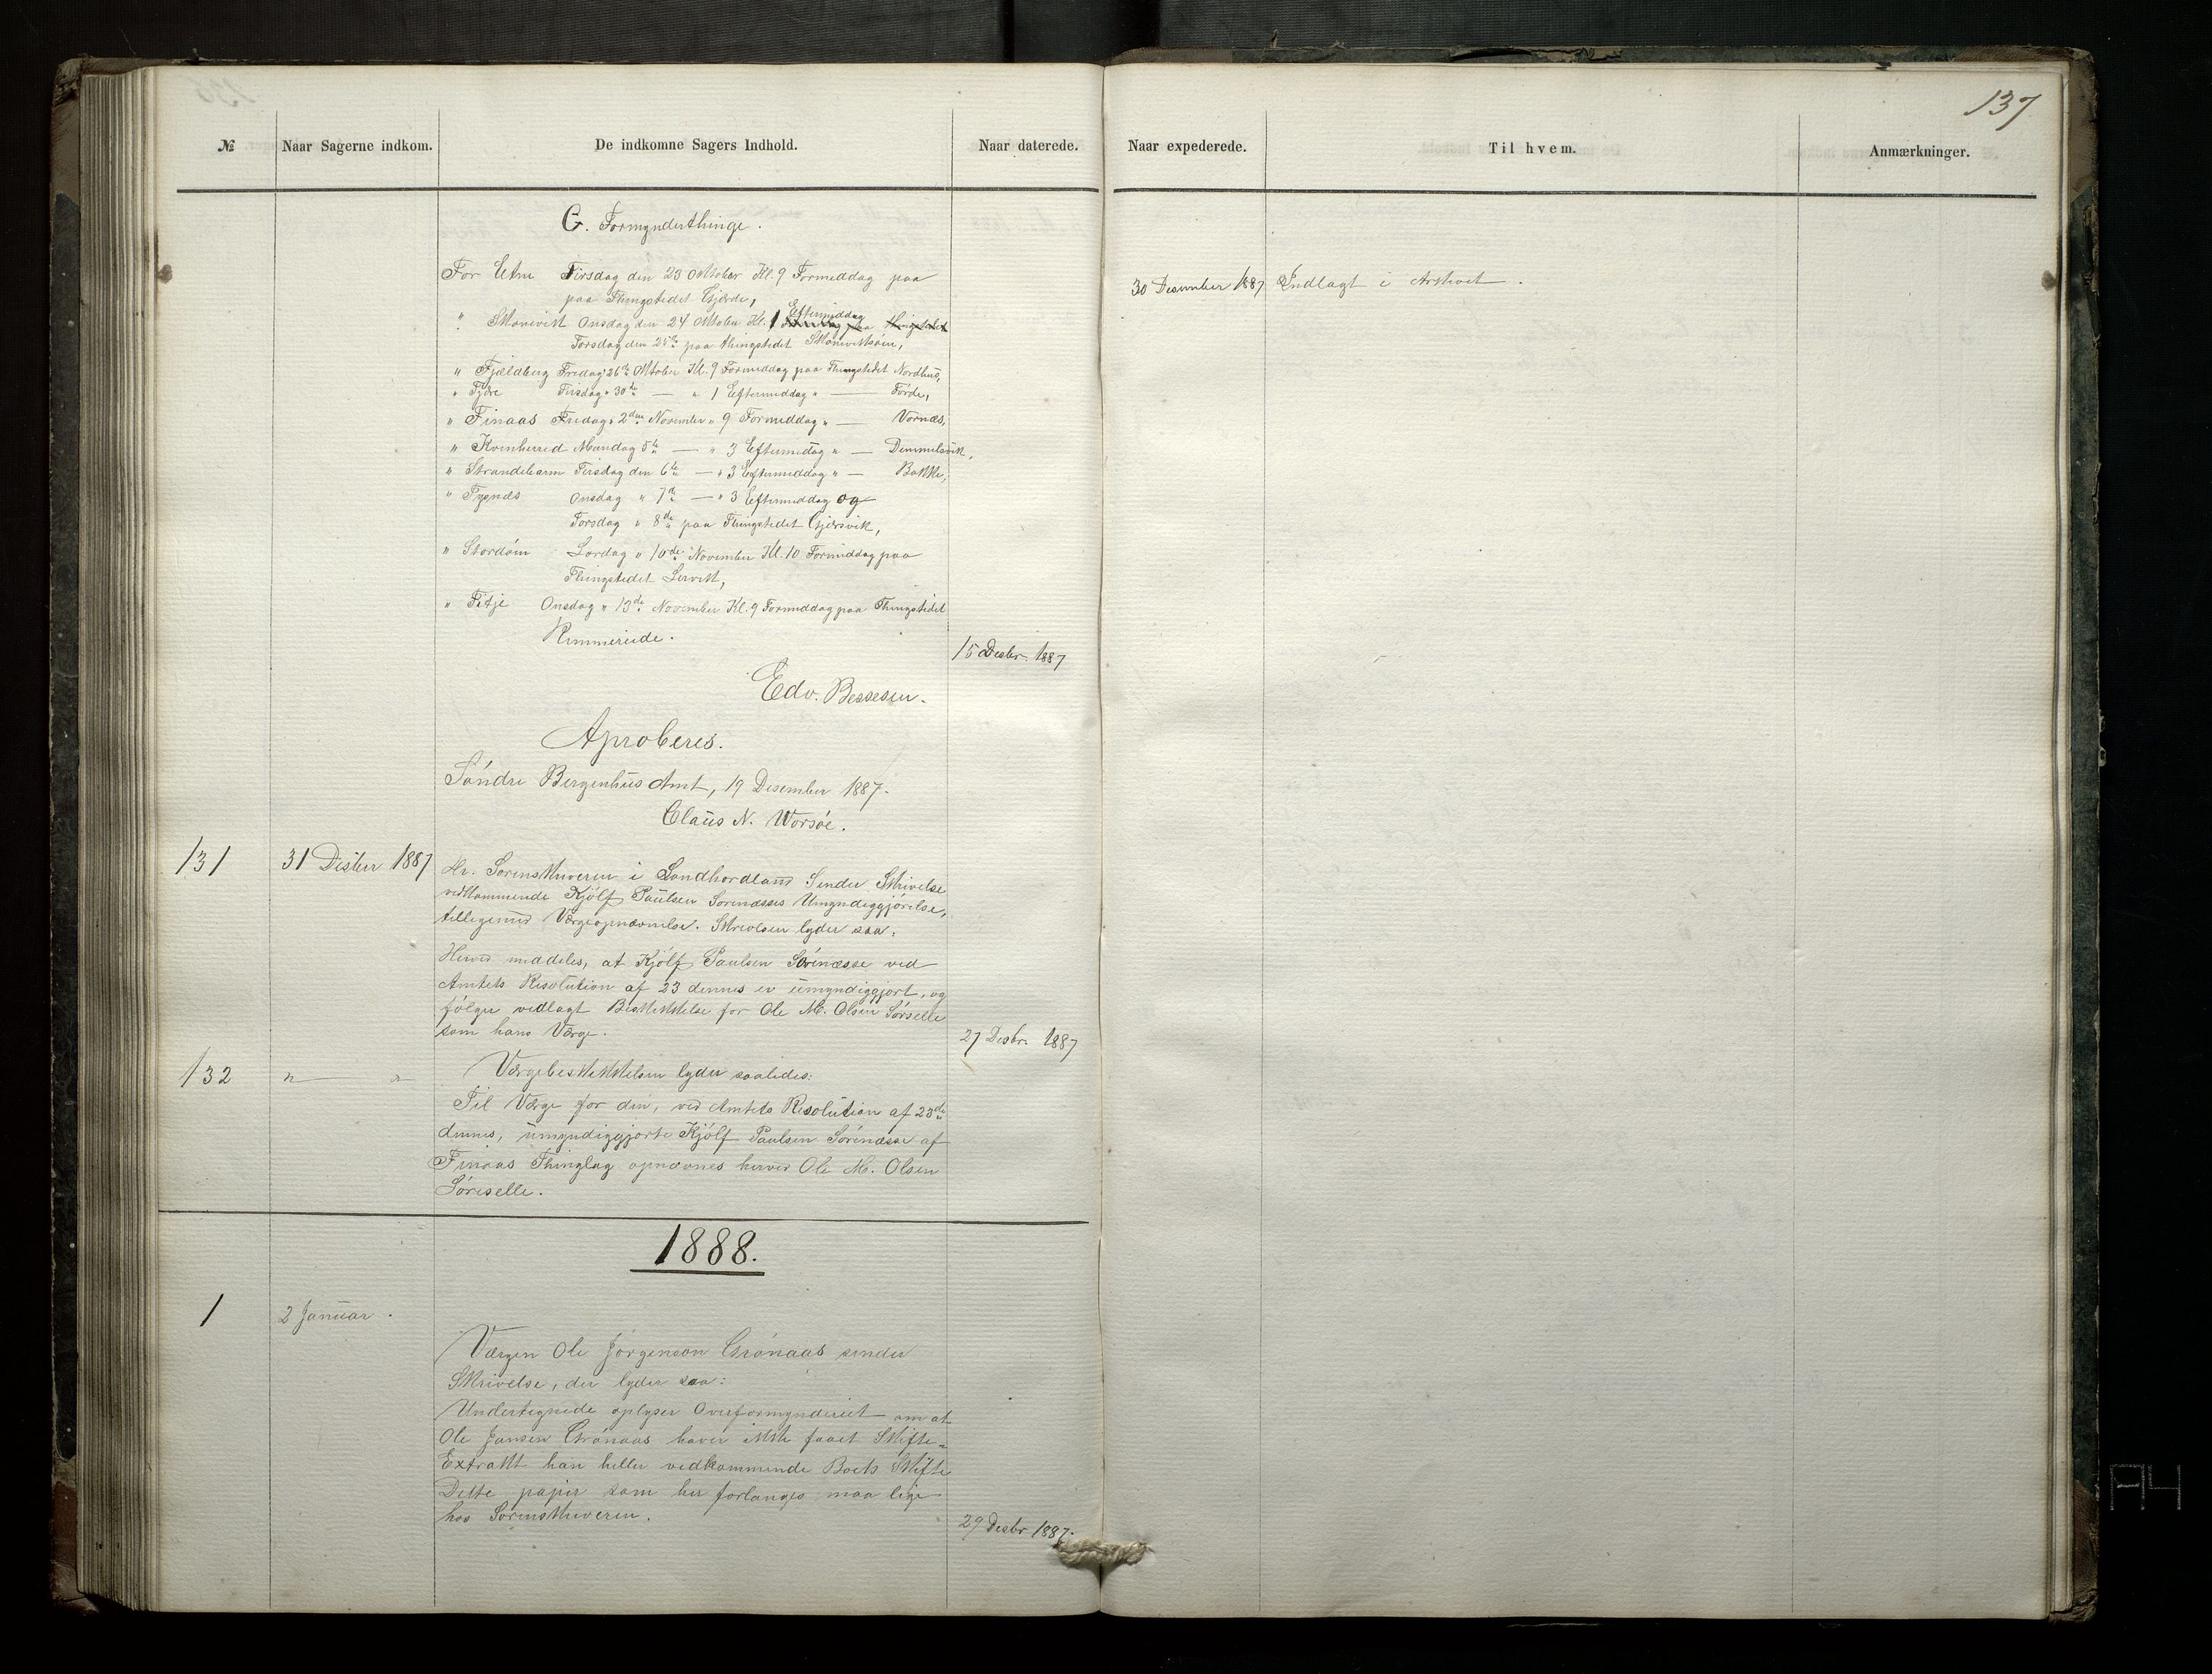 137
№
Naar Sagerne indkom.
De indkomne Sagers Indhold.
Naar daterede.
Naar expederede.
Til hvem.
Anmærkninger.
G. Formynderthinge.
For Etne Tirsdag den 23 Oktober Kl. 9 Formiddag paa
paa Thingstedet Gjerde,
" Skonevik Onsdag den 24 Oktober Kl. 1 Eftermiddag paa thingstedet
Torsdag den 25de paa thingstedet Skoneviksøen,
" Fjældberg Fredag 26de Oktober Kl. 9 Formiddag paa Thingstedet Nordhus,
" Fjære Tirsdag " 30te — " 1 Eftermiddag " — Førde,
" Finaas Fredag " 2den November " 9 Formiddag " — Vornæs,
" Kvinherred Mandag 5te — " 3 Eftermidag " — Demmelsvik,
" Strandebarm Tirsdag den 6te — " 3 Eftermiddag " — Bakke,
" Tysnæs Onsdag " 7de — " 3 Eftermiddag og
Torsdag " 8de paa Thingstedet Gjersvik,
" Stordøen Lørdag " 10de November Kl. 10 Formiddag paa
Thingstedet Lervik,
" Fitje Onsdag " 13de November Kl. 9 Formiddag paa Thingstedet
Rimmereide.
15 Desbr. 1887
30 Desember 1887 Indlagt i Arkivet.
Edv. Bessesen.
Aproberes.
Søndre Bergenhus Amt, 19 Desember 1887.
Claus N. Worsøe.
131
31 Desber 1887
Hr. Sorenskriveren i Søndhordland sender Skrivelse
vedkommende Kjølf Paulsen Sørenæsses Umyndiggjørelse,
tilligemed Værgeopnævnelse. Skrivelsen lyder saa:
Herved meddeles, at Kjølf Paulsen Sørenæsse ved
Amtets Resolution af 23 dennes er umyndiggjort, og
følger vedlagt Beskikkelse for Ole M. Olsen Sørselle
som hans Værge.
27 Desbr. 1887
132
" "
Værgebeskikkelsen lyder saaledes:
Til Værge for den, ved Amtets Resolution af 23de
dennes, umyndiggjorte Kjølf Paulsen Sørenæsse af
Finaas Thinglag opnævnes herved Ole M. Olsen
Søreselle.
1888.
1
2 Januar.
Værgen Ole Jørgenson Grønaas sender
Skrivelse, der lyder saa:
Undertegnede oplyser Overformynderiet om at
Ole Jansen Grønaas haver ikke faaet Skifte-
Extrakt han heller vedkommende Boets Skifte
Dette papir som her forlanges maa lige
hos Sorenskriveren.
29 Desbr 1887.